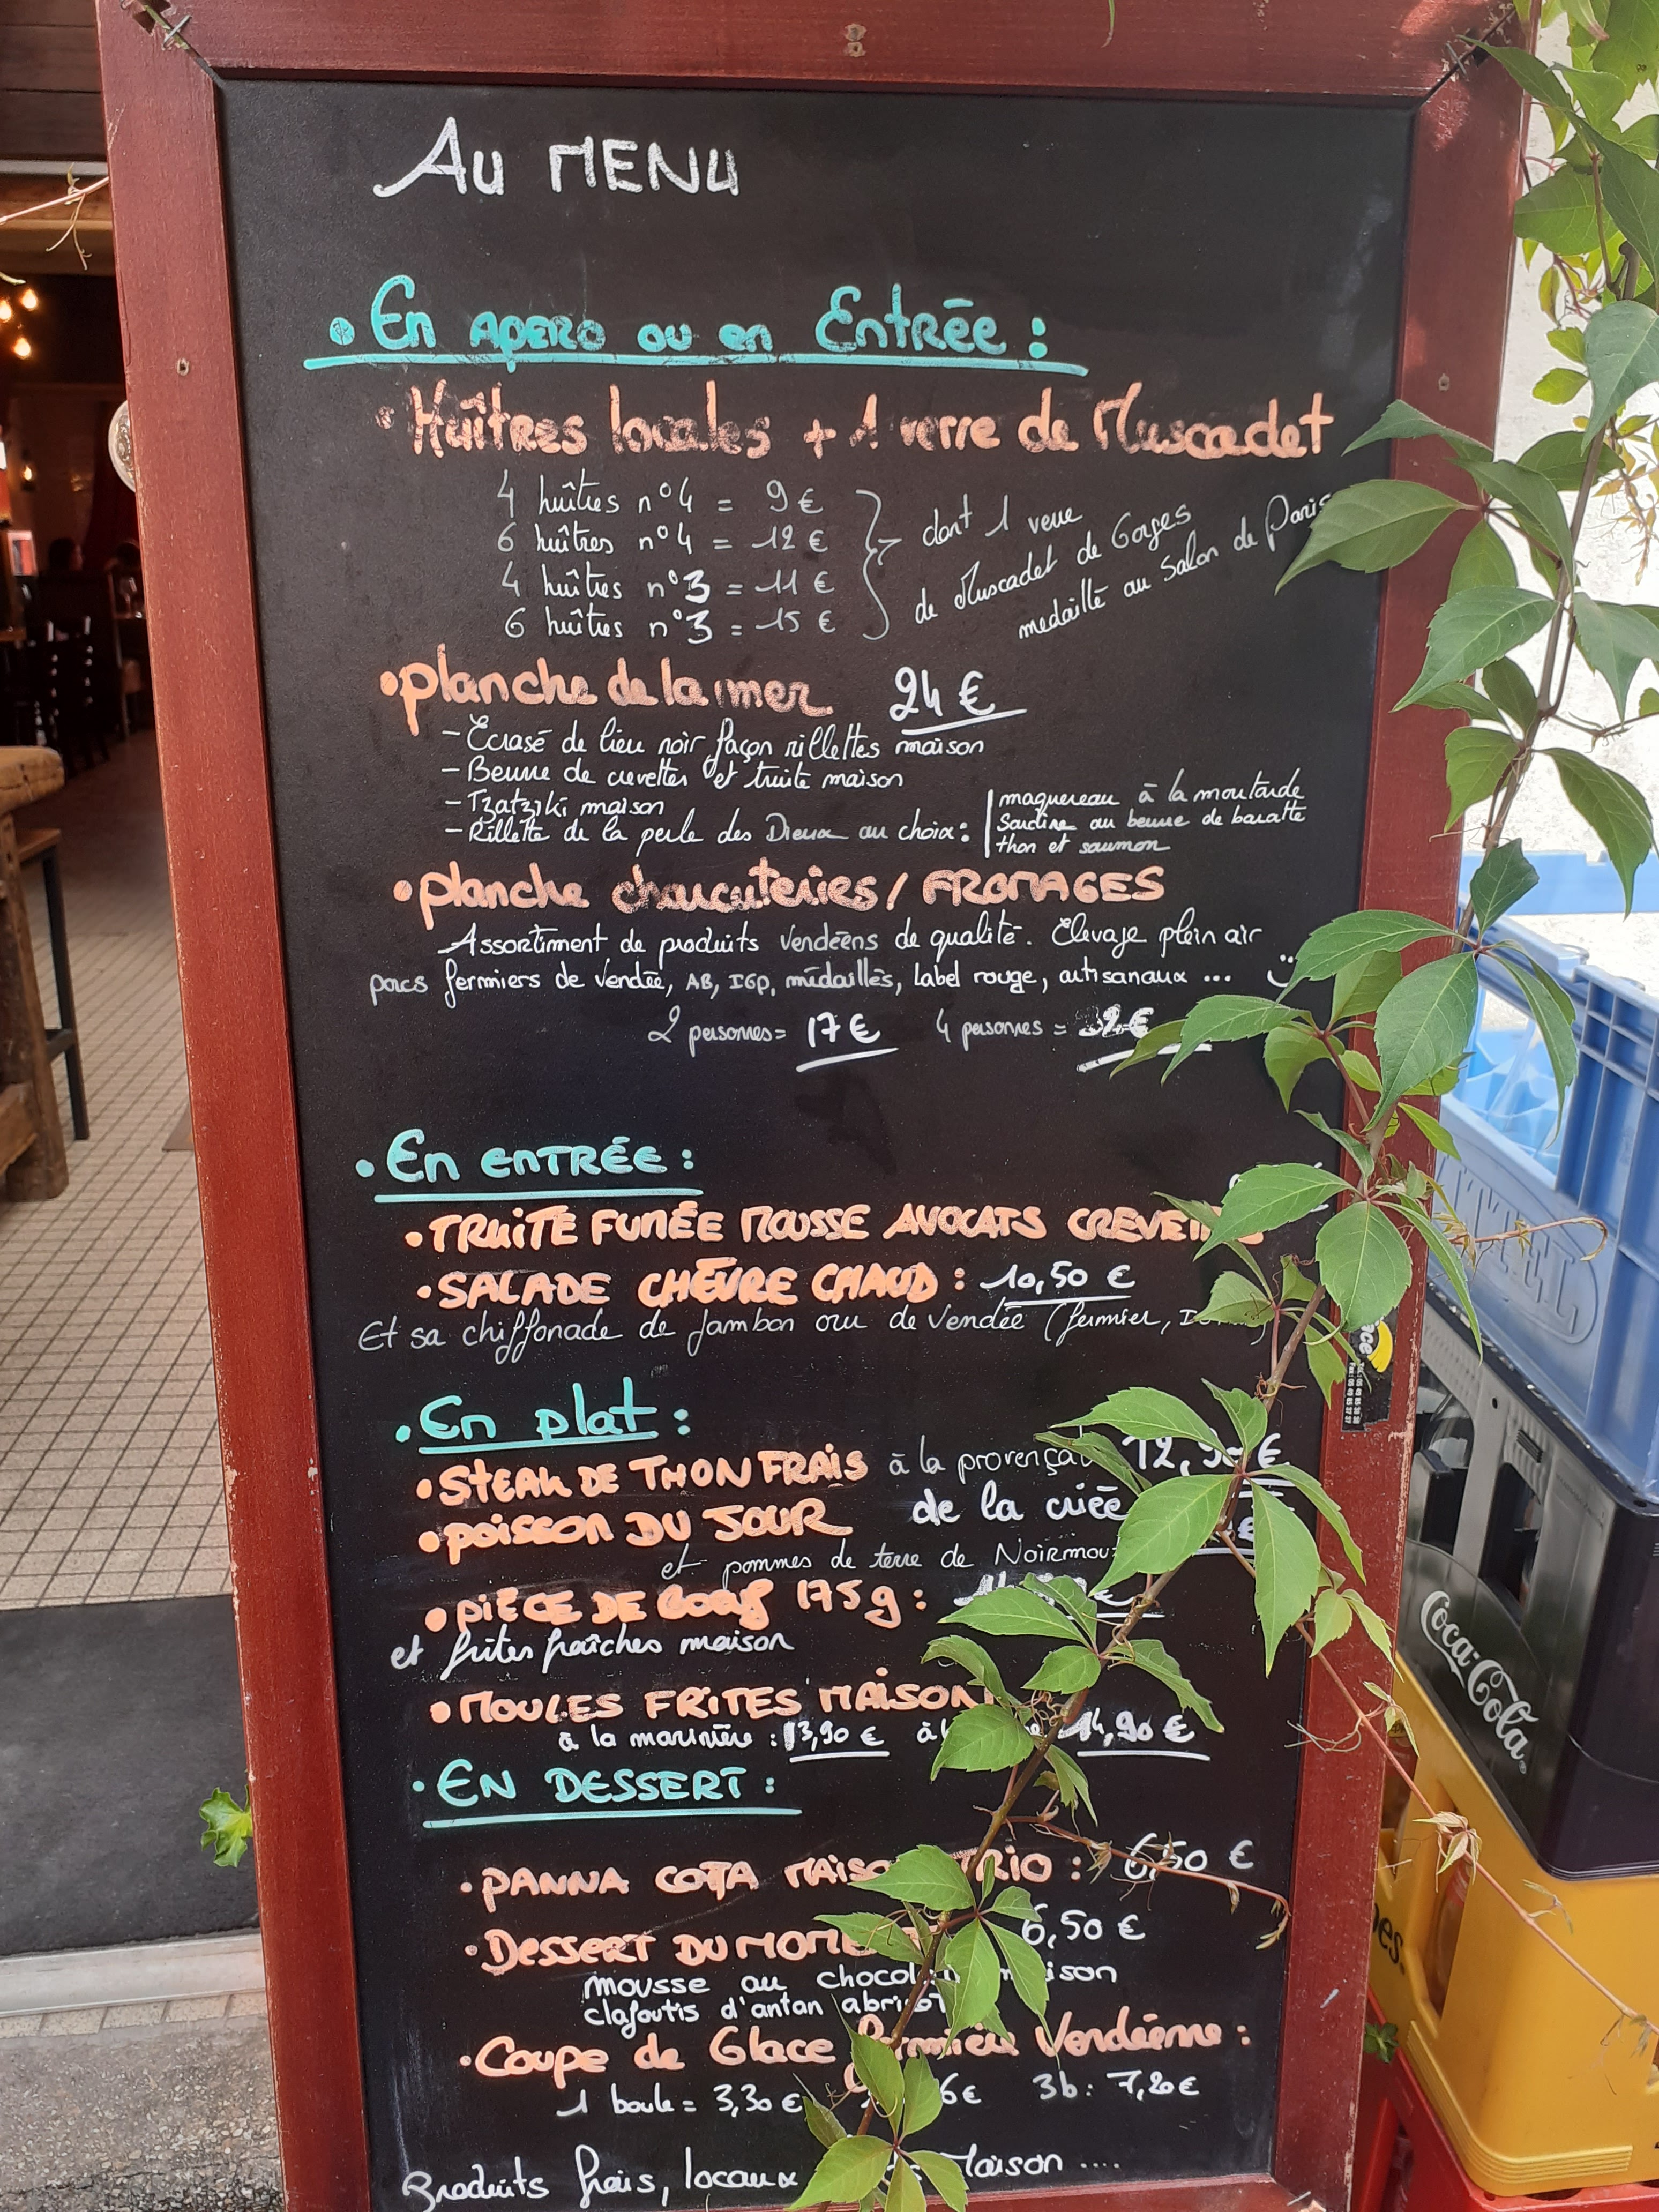 Au MENU
• En APERO ou en Entrée :
• Huîtres locales + 1 verre de Muscadet
4 huîtres n°4 = 9 €
6 huîtres n°4 = 12 €
4 huîtres n°3 = 11 €
6 huîtres n°3 = 15 €
dont 1 verre
de Muscadet de Gorges
medaillé au Salon de Paris
• planche de la mer 24 €
- Écrasé de lieu noir façon rillettes maison
- Beurre de crevettes et truite maison
- Tzatziki maison
- Rillette de la perle des Dieux au choix :
maquereau à la moutarde
Sardine au beurre de baratte
thon et saumon
• planche charcuteries / FROMAGES
Assortiment de produits Vendéens de qualité. Elevage plein air
porcs fermiers de Vendée, AB, IGP, médaillés, label rouge, artisanaux ...
2 personnes = 17 € 4 personnes =
• En ENTRÉE :
• TRUITE FUMÉE MOUSSE AVOCATS
• SALADE CHÈVRE CHAUD : 10,50 €
Et sa chiffonade de Jambon cru de Vendée (fermier,
• En plat :
• STEAK DE THON FRAIS à la provençal
• POISSON DU JOUR de la criée
et pommes de terre de
• PIÈCE DE BOEUF 175 g :
et frites fraîches maison
• MOULES FRITES MAISON
à la marinière : 13,90 € 14,90 €
• EN DESSERT :
• PANNA COTTA MAISON TRIO : 6,50 €
• DESSERT DU 6,50 €
mousse au chocolat maison
clafoutis d'antan abricot
• Coupe de Glace Fermière Vendéenne :
1 boule = 3,30 € 3b : 7,20 €
Produits frais, locaux Maison ....
Coca-Cola